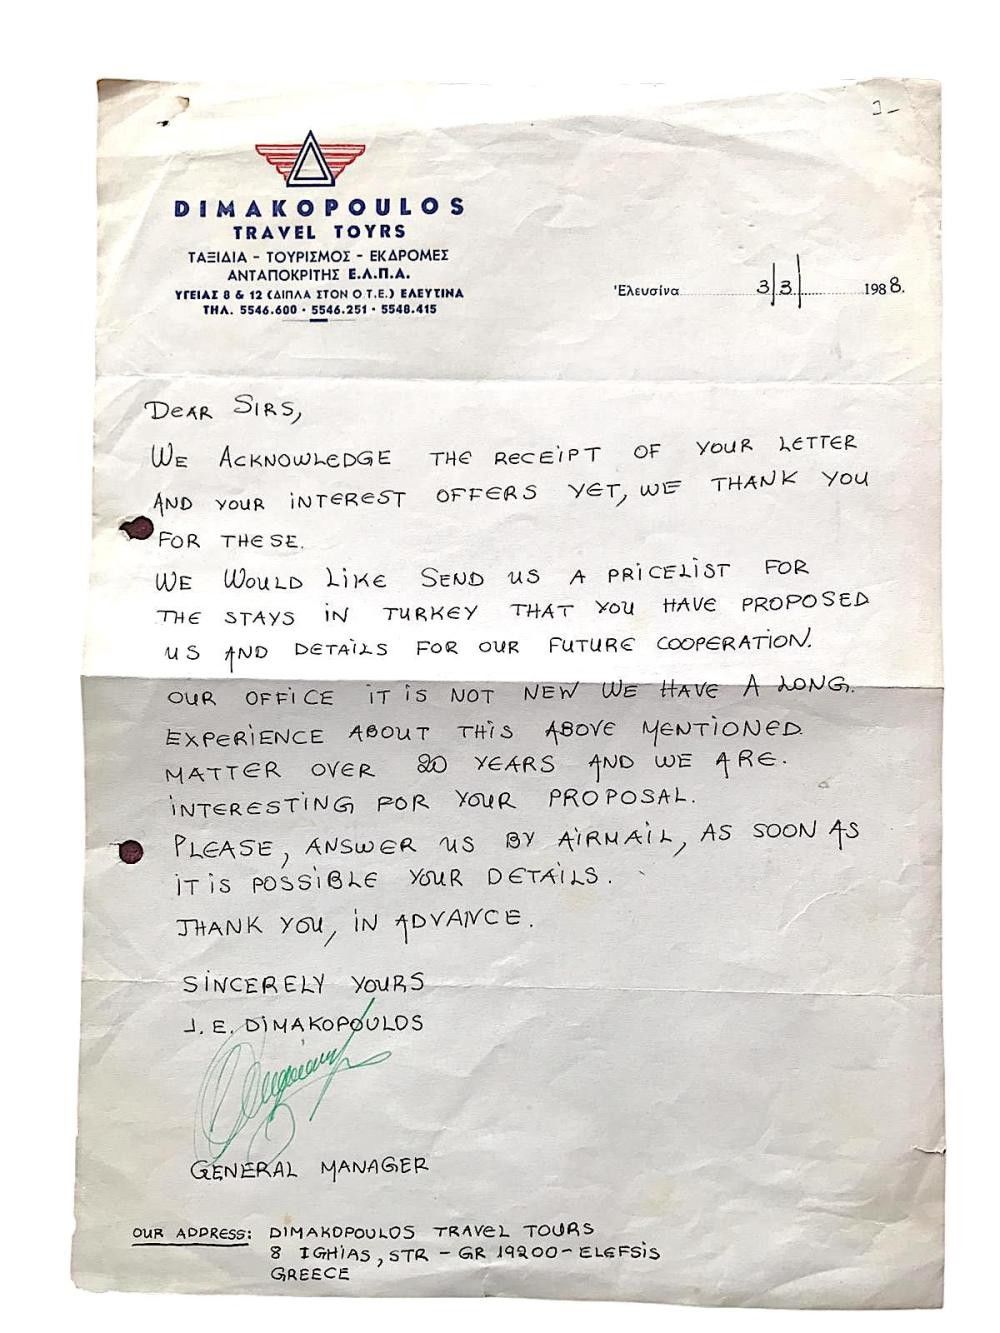 DIMAKOPOULOS
TRAVEL TOYRS
ΤΑΞΙΔΙΑ - ΤΟΥΡΙΣΜΟΣ - ΕΚΔΡΟΜΕΣ
ΑΝΤΑΠΟΚΡΙΤΗΣ Ε.Λ.Π.Α.
ΥΓΕΙΑΣ 8 & 12 (ΔΙΠΛΑ ΣΤΟΝ Ο.Τ.Ε.) ΕΛΕΥΣΙΝΑ
ΤΗΛ. 5546.600 · 5546.251 · 5548.415
Ἐλευσίνα 3/3/ 1988.
DEAR SIRS,
WE ACKNOWLEDGE THE RECEIPT OF YOUR LETTER
AND YOUR INTEREST OFFERS YET, WE THANK YOU
FOR THESE.
WE WOULD LIKE SEND US A PRICELIST FOR
THE STAYS IN TURKEY THAT YOU HAVE PROPOSED
US AND DETAILS FOR OUR FUTURE COOPERATION.
OUR OFFICE IT IS NOT NEW WE HAVE A LONG.
EXPERIENCE ABOUT THIS ABOVE MENTIONED.
MATTER OVER 20 YEARS AND WE ARE.
INTERESTING FOR YOUR PROPOSAL.
PLEASE, ANSWER US BY AIRMAIL, AS SOON AS
IT IS POSSIBLE YOUR DETAILS.
THANK YOU, IN ADVANCE.
SINCERELY YOURS
J. E. DIMAKOPOULOS
GENERAL MANAGER
OUR ADDRESS: DIMAKOPOULOS TRAVEL TOURS
8 IGHIAS, STR - GR 19200 - ELEFSIS
GREECE